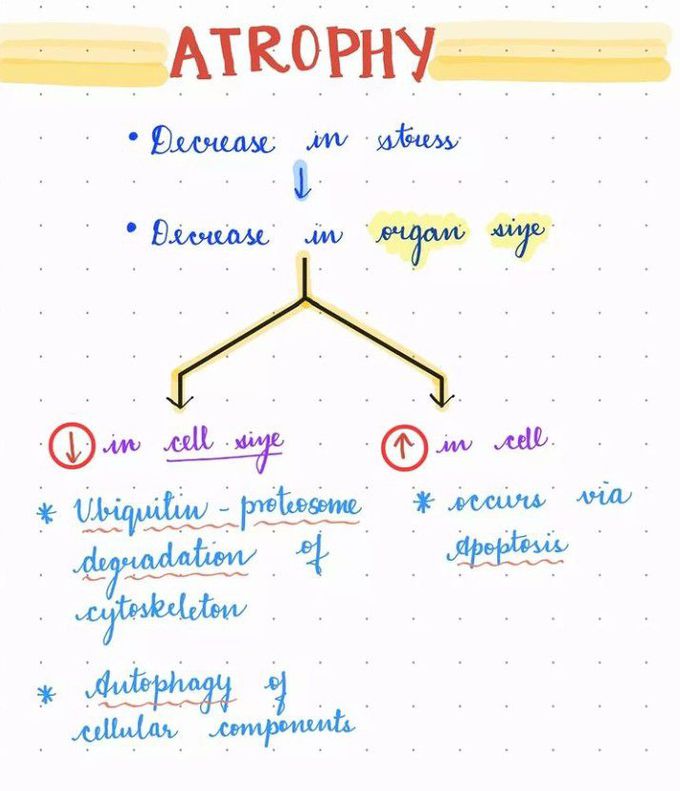 ATROPHY
• Decrease in stress
↓
• Decrease in organ size
↓ in cell size
* Ubiquitin - proteosome
degradation of
cytoskeleton
* Autophagy of
cellular components
↑ in cell
* occurs via
Apoptosis